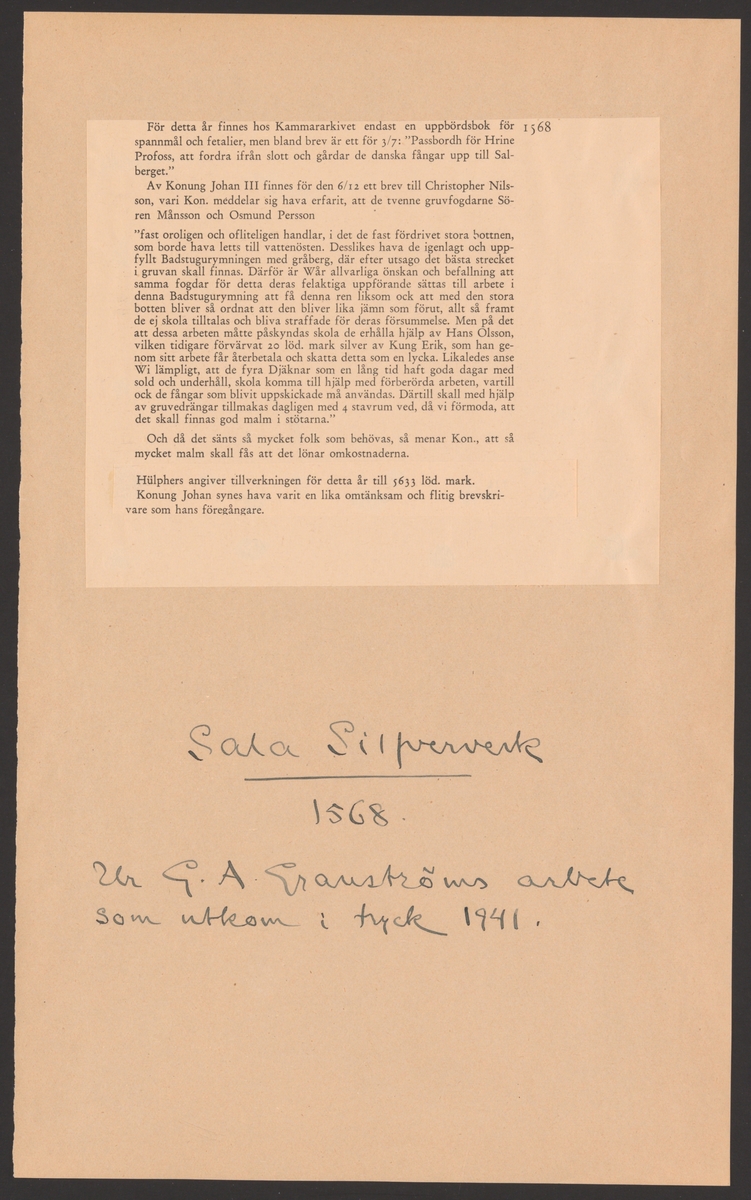 För detta år finnes hos Kammararkivet endast en uppbördsbok för 1568
spannmål och fetalier, men bland brev är ett för 3/7: "Passbordh för Hrine
Profoss, att fordra ifrån slott och gårdar de danska fångar upp till Sal-
berget."
Av Konung Johan III finnes för den 6/12 ett brev till Christopher Nils-
son, vari Kon. meddelar sig hava erfarit, att de tvenne gruvfogdarne Sö-
ren Månsson och Osmund Persson
"fast oroligen och ofliteligen handlar, i det de fast fördrivet stora bottnen,
som borde hava letts till vattenösten. Desslikes hava de igenlagt och upp-
fyllt Badstugurymningen med gråberg, där efter utsago det bästa strecket
i gruvan skall finnas. Därför är Wår allvarliga önskan och befallning att
samma fogdar för detta deras felaktiga uppförande sättas till arbete i
denna Badstugurymning att få denna ren liksom ock att med den stora
botten bliver så ordnat att den bliver lika jämn som förut, allt så framt
de ej skola tilltalas och bliva straffade för deras försummelse. Men på det
att dessa arbeten måtte påskyndas skola de erhålla hjälp av Hans Olsson,
vilken tidigare förvärvat 20 löd. mark silver av Kung Erik, som han ge-
nom sitt arbete får återbetala och skatta detta som en lycka. Likaledes anse
Wi lämpligt, att de fyra Djäknar som en lång tid haft goda dagar med
sold och underhåll, skola komma till hjälp med förberörda arbeten, vartill
ock de fångar som blivit uppskickade må användas. Därtill skall med hjälp
av gruvedrängar tillmakas dagligen med 4 stavrum ved, då vi förmoda, att
det skall finnas god malm i stötarna."
Och då det sänts så mycket folk som behövas, så menar Kon., att så
mycket malm skall fås att det lönar omkostnaderna.
Hülphers angiver tillverkningen för detta år till 5633 löd. mark.
Konung Johan synes hava varit en lika omtänksam och flitig brevskri-
vare som hans föregångare.
Sala Silfververk
1568.
Ur G. A. Granströms arbete
som utkom i tryck 1941.